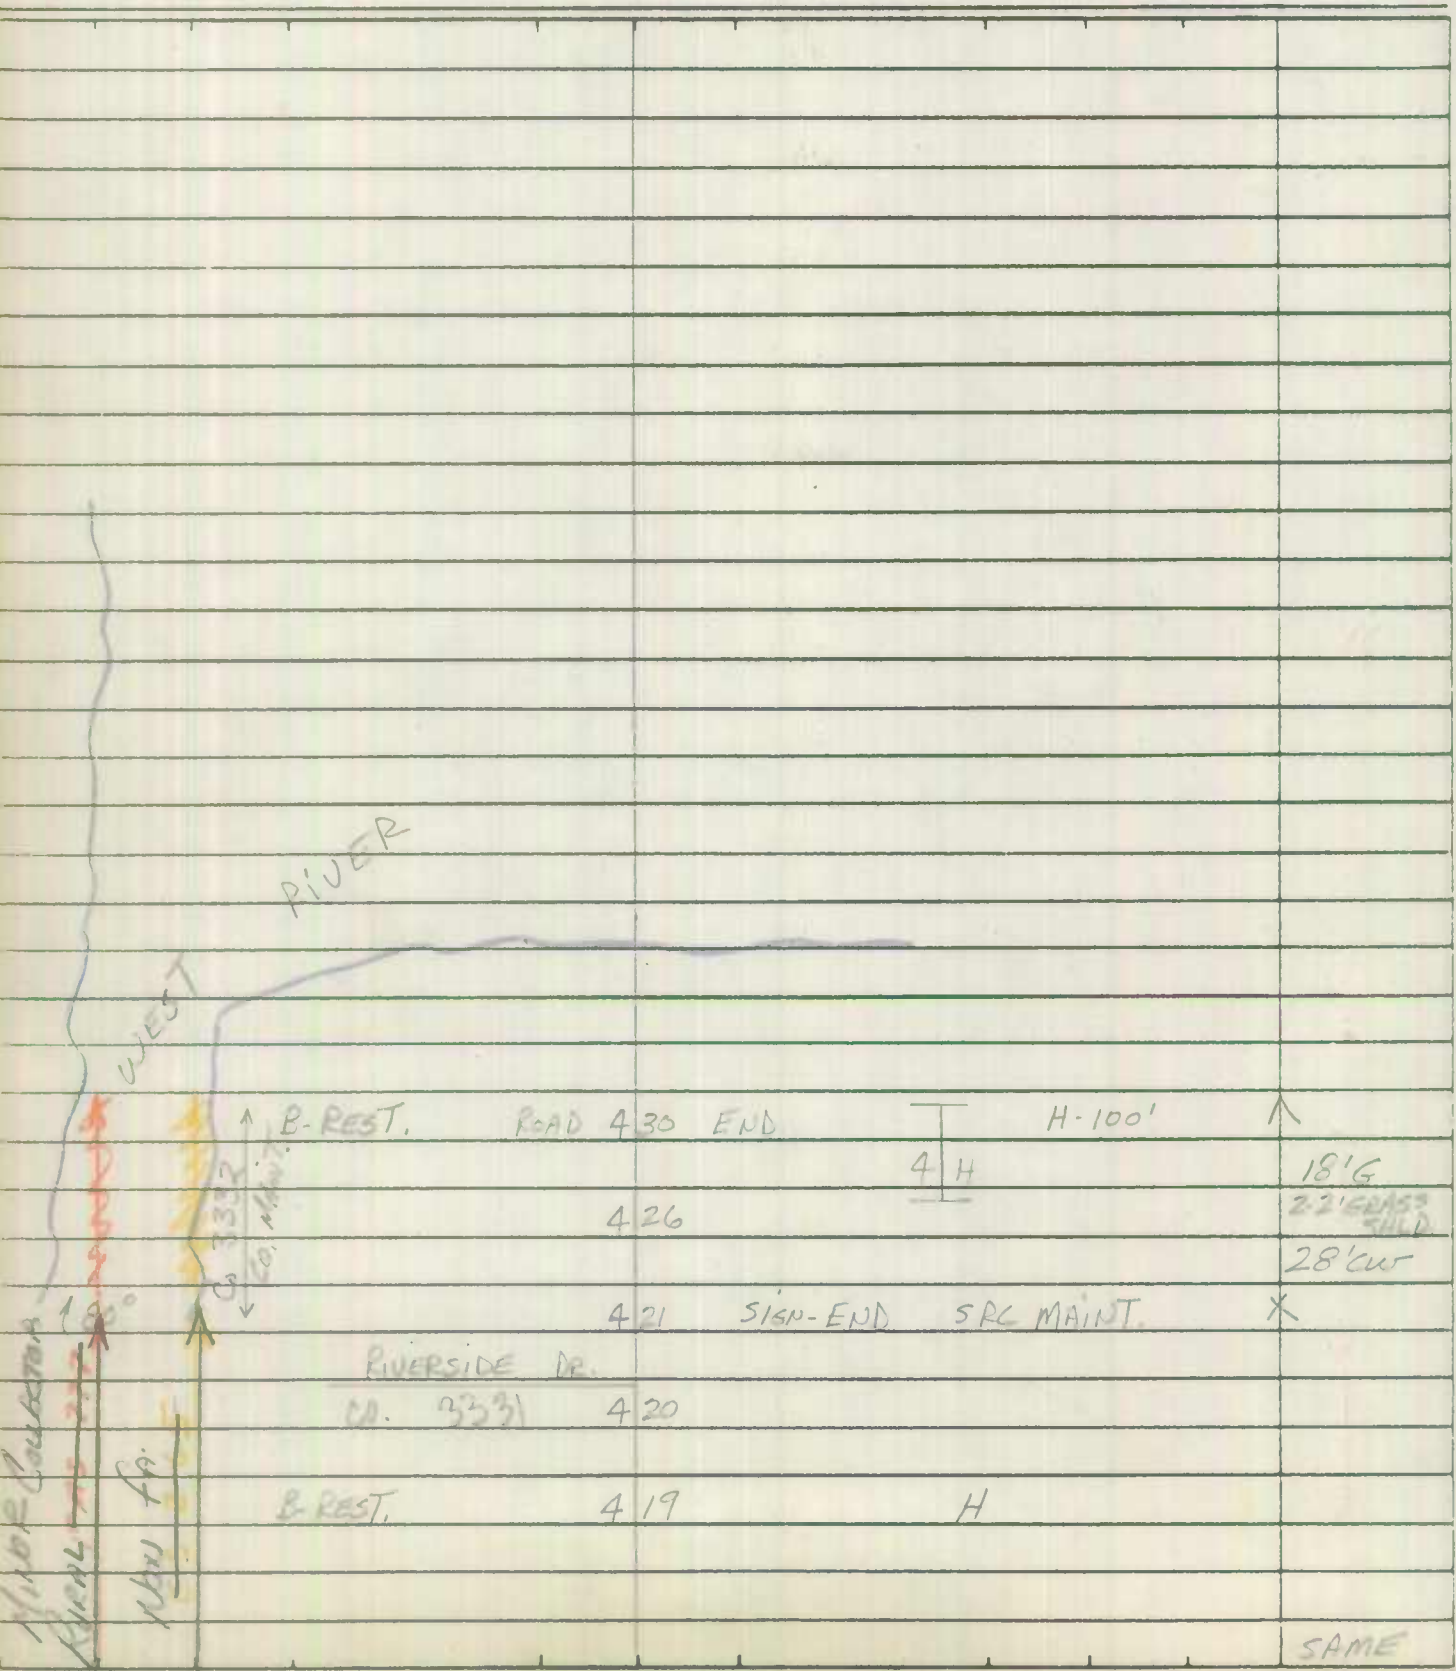 RIVER
WEST
B-REST. ROAD 4 30 END H-100'
4 H 18'G
4 26 2-2' GRASS SHLD.
28'CW
Co 3332
CO. MAINT.
4 21 SIGN-END SRC MAINT. X
RIVERSIDE DR.
CO. 3331 4 20
B-REST. 4 19 H
SAME
MINOR COLLECTOR
RURAL
NON FA.